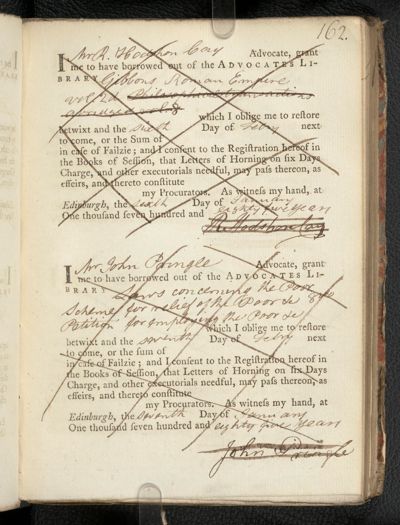 162.
I Mr R. Hodshon Cay Advocate, grant
me to have borrowed out of the ADVOCATES LI-
BRARY Gibbons Roman Empire
vol 2d Philosophical Transactions
abridged vol 8
which I oblige me to reſtore
betwixt and the sixth Day of Febry next
to come, or the Sum of
in caſe of Failzie; and I conſent to the Regiſtration hereof in
the Books of Seſſion, that Letters of Horning on ſix Days
Charge, and other executorials needful, may paſs thereon, as
effeirs, and thereto conſtitute
my Procurators. As witneſs my hand, at
Edinburgh, the sixth Day of January
One thouſand ſeven hundred and eighty five years
R. Hodshon Cay
I Mr John Pringle Advocate, grant
me to have borrowed out of the ADVOCATES LI-
BRARY Laws concerning the Poor
Scheme for relief of the Poor &c 8vo
Petition for employing the Poor &c
which I oblige me to reſtore
betwixt and the seventh Day of Febry next
to come, or the ſum of
in caſe of Failzie; and I conſent to the Regiſtration hereof in
the Books of Seſſion, that Letters of Horning on ſix Days
Charge, and other executorials needful, may paſs thereon, as
effeirs, and thereto conſtitute
my Procurators. As witneſs my hand, at
Edinburgh, the seventh Day of January
One thouſand ſeven hundred and eighty five years
John Pringle